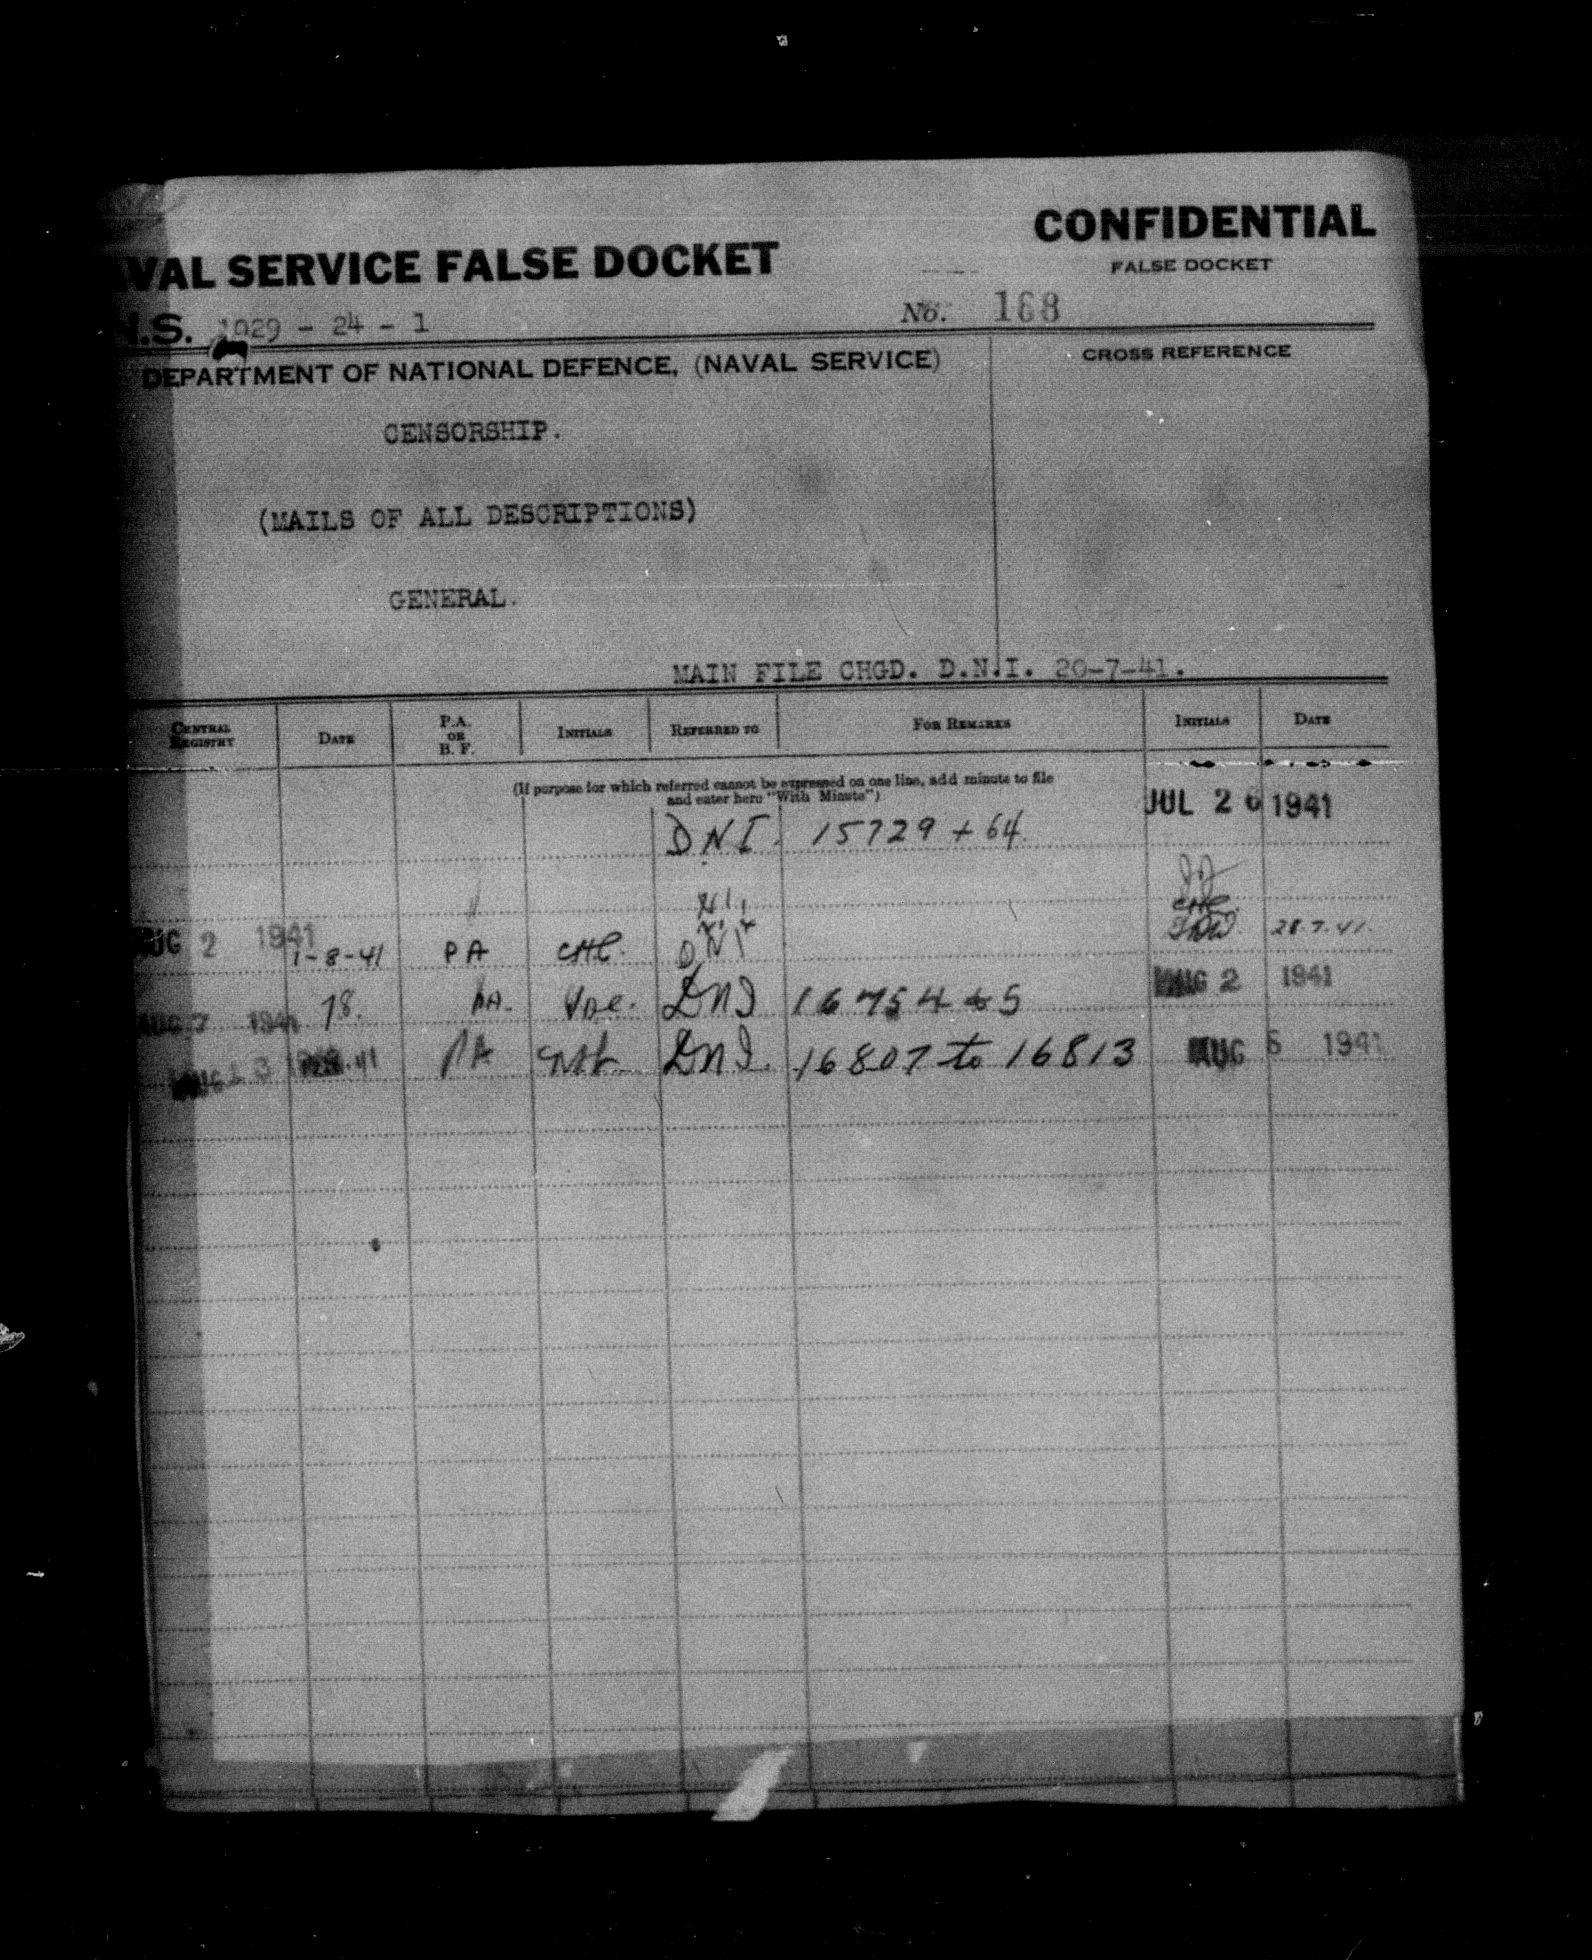 CONFIDENTIAL
AVAL SERVICE FALSE DOCKET
FALSE DOCKET
N.S. 1029 - 24 - 1
No. 168
DEPARTMENT OF NATIONAL DEFENCE, (NAVAL SERVICE)
CROSS REFERENCE
CENSORSHIP.
(MAILS OF ALL DESCRIPTIONS)
GENERAL.
MAIN FILE CHGD. D.N.I. 20-7-41.
CENTRAL REGISTRY DATE P.A. OR B. F. INITIALS REFERRED TO FOR REMARKS INITIALS DATE
(If purpose for which referred cannot be expressed on one line, add minute to file
and enter here "With Minute")
DNI. 15729 + 64 JUL 26 1941
28.7.41.
AUG 2 1941 1-8-41 PA CHC. DNI
7 8. PA. DNI 16754 & 5 AUG 2 1941
AUG 7 1941
PA DNI. 16807 to 16813 AUG 6 1941